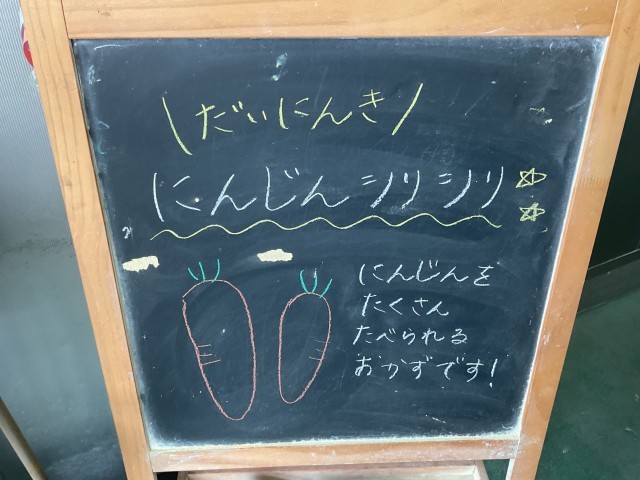 \だいにんき/
にんじんシリシリ☆☆
にんじんを
たくさん
たべられる
おかずです!